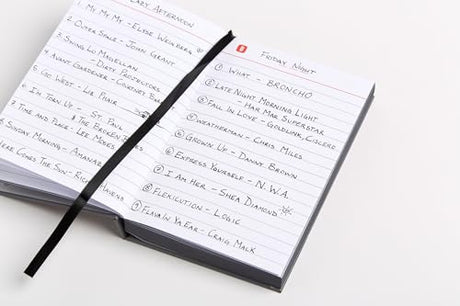 Lazy Afternoon
1. My My My - Elyse Weinberg
2. Outer Space - John Grant
3. Swing Lo Magellan
- Dirty Projectors
4. Avant Gardener - Courtney
5. Go West - Liz Phair
6. I'm Torn Up - St. Paul
& The Broken
7. Time and Place - Lee Moses
8. Sunday Morning - Amanaz
Here Comes The Sun - Richie Havens
Friday Night
1 What - Broncho
2 Late Night Morning Light
- Har Mar Superstar
3 Fall In Love - Goldlink, Ciscero
4 Weatherman - Chris Miles
5 Grown Up - Danny Brown
6 Express Yourself - N.W.A.
7 I Am Her - Shea Diamond
8 Flexicution - Logic
9 Flava In Ya Ear - Craig Mack